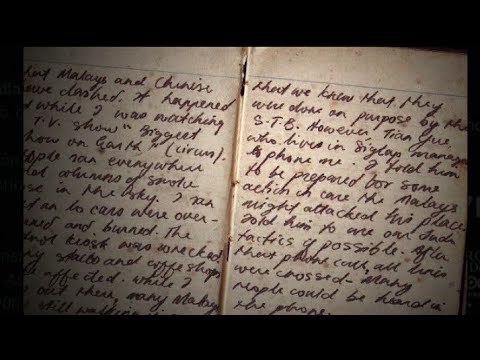 hat Malays and Chinese
ave clashed. It happened
d while I was watching
T.V. show "Biggest
how on Earth" (circus).
ople ran everywhere
columns of smoke
se in the sky. I ran
cars were over-
ned and burned. The
kiosk was wrecked
ny stalls and coffeeshops
e affected. While I
out there, many Malay
still walking
that we knew that they
were done on purpose by the
S.T.B. However, Tian Yue
who lives in Siglap manage
to phone me. I told him
to be prepared for some
action in case the Malays
might attacked his place
told him to use our Judo
tactics if possible. After
that phone call, all lines
were crossed - Many
people could be heard in
the phone.